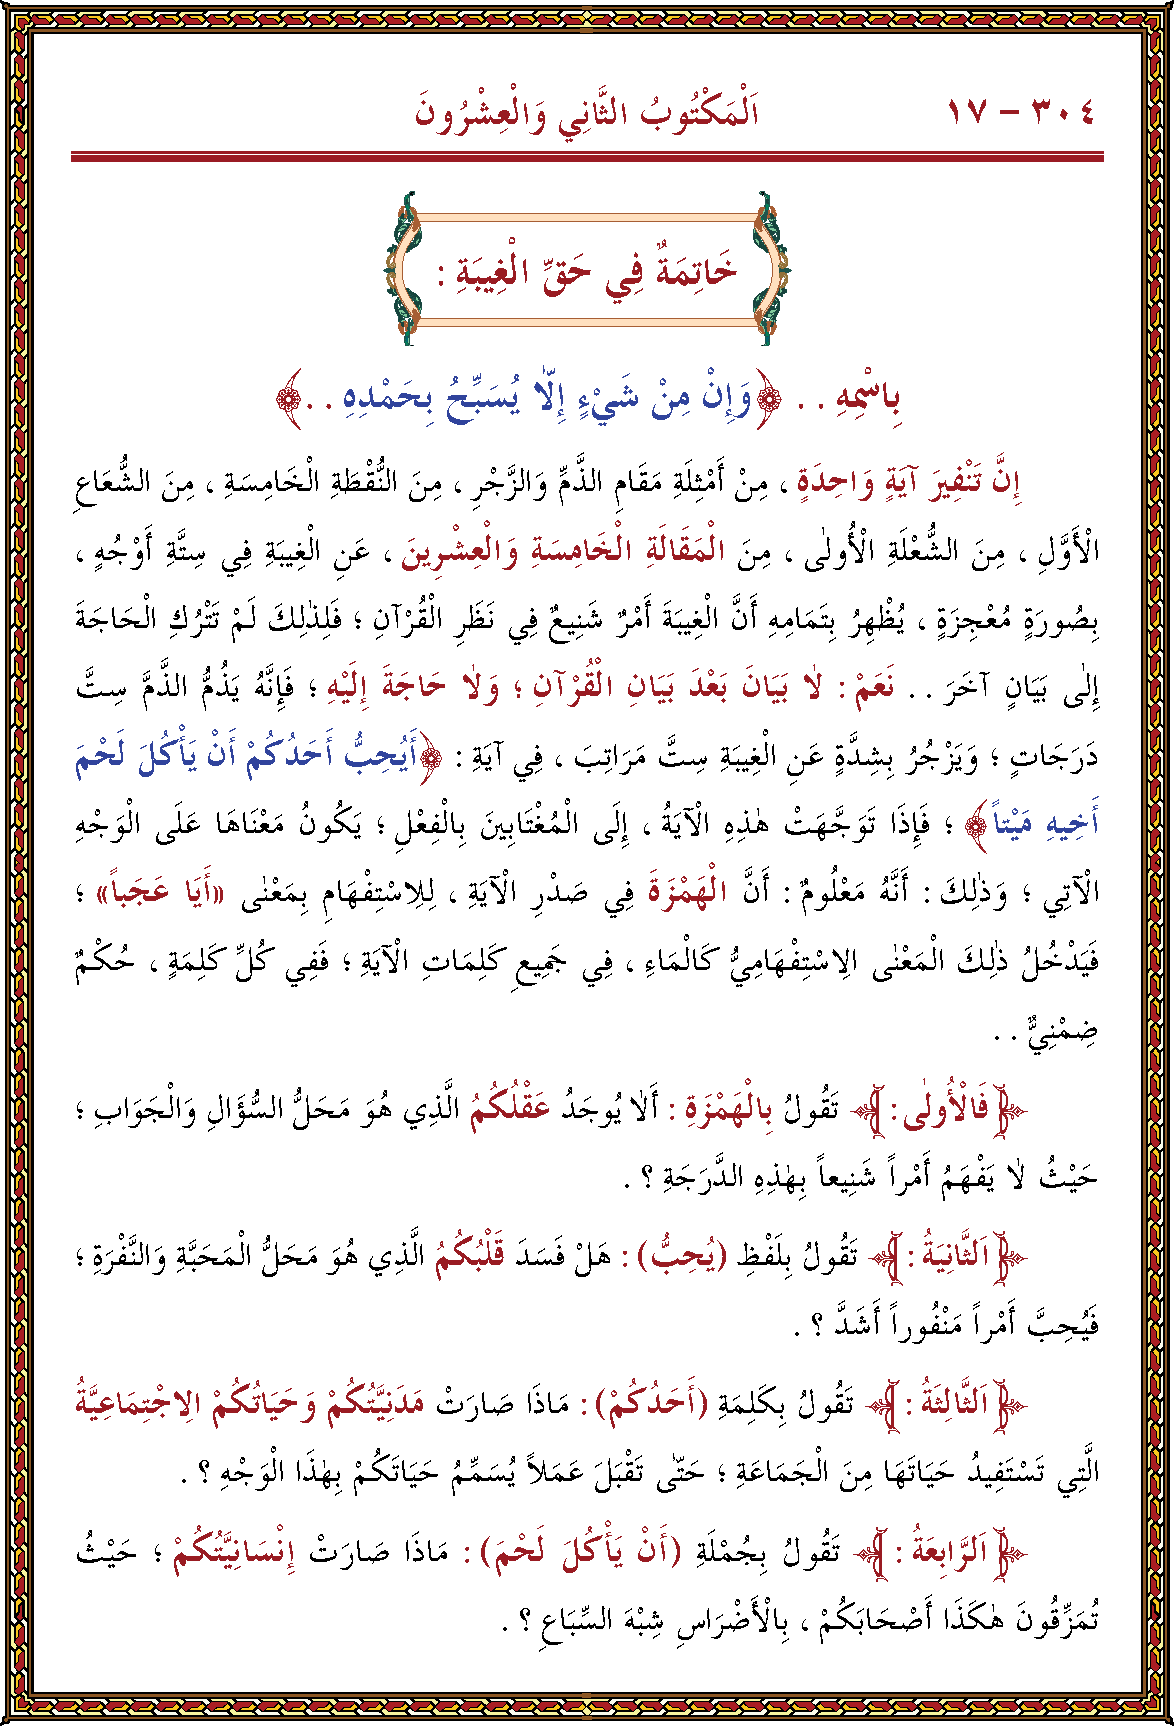 ٣٠٤ – ١٧
اَلْمَكْتُوبُ الثَّانِي وَالْعِشْرُونَ
خَاتِمَةٌ فِي حَقِّ الْغِيبَةِ :
بِاسْمِهِ . . ﴿وَإِنْ مِنْ شَيْءٍ إِلَّا يُسَبِّحُ بِحَمْدِهِ . .﴾
إِنَّ تَنْفِيرَ آيَةٍ وَاحِدَةٍ ، مِنْ أَمْثِلَةِ مَقَامِ الذَّمِّ وَالزَّجْرِ ، مِنَ النُّقْطَةِ الْخَامِسَةِ ، مِنَ الشُّعَاعِ
الْأَوَّلِ ، مِنَ الشُّعْلَةِ الْأُولٰى ، مِنَ الْمَقَالَةِ الْخَامِسَةِ وَالْعِشْرِينَ ، عَنِ الْغِيبَةِ فِي سِتَّةِ أَوْجُهٍ ،
بِصُورَةٍ مُعْجِزَةٍ ، يُظْهِرُ بِتَمَامِهِ أَنَّ الْغِيبَةَ أَمْرٌ شَنِيعٌ فِي نَظَرِ الْقُرْآنِ ؛ فَلِذٰلِكَ لَمْ تَتْرُكِ الْحَاجَةَ
إِلٰى بَيَانٍ آخَرَ . . نَعَمْ : لَا بَيَانَ بَعْدَ بَيَانِ الْقُرْآنِ ؛ وَلَا حَاجَةَ إِلَيْهِ ؛ فَإِنَّهُ يَذُمُّ الذَّمَّ سِتَّ
دَرَجَاتٍ ؛ وَيَزْجُرُ بِشِدَّةٍ عَنِ الْغِيبَةِ سِتَّ مَرَاتِبَ ، فِي آيَةِ : ﴿أَيُحِبُّ أَحَدُكُمْ أَنْ يَأْكُلَ لَحْمَ
أَخِيهِ مَيْتاً﴾ ؛ فَإِذَا تَوَجَّهَتْ هٰذِهِ الْآيَةُ ، إِلَى الْمُغْتَابِينَ بِالْفِعْلِ ؛ يَكُونُ مَعْنَاهَا عَلَى الْوَجْهِ
الْآتِي ؛ وَذٰلِكَ : أَنَّهُ مَعْلُومٌ : أَنَّ الْهَمْزَةَ فِي صَدْرِ الْآيَةِ ، لِلِاسْتِفْهَامِ بِمَعْنٰى «أَيَا عَجَباً» ؛
فَيَدْخُلُ ذٰلِكَ الْمَعْنٰى الِاسْتِفْهَامِيُّ كَالْمَاءِ ، فِي جَمِيعِ كَلِمَاتِ الْآيَةِ ؛ فَفِي كُلِّ كَلِمَةٍ ، حُكْمٌ
ضِمْنِيٌّ . .
﴿فَالْأُولٰى :﴾ تَقُولُ بِالْهَمْزَةِ : أَلَا يُوجَدُ عَقْلُكُمُ الَّذِي هُوَ مَحَلُّ السُّؤَالِ وَالْجَوَابِ ؛
حَيْثُ لَا يَفْهَمُ أَمْراً شَنِيعاً بِهٰذِهِ الدَّرَجَةِ ؟ .
﴿اَلثَّانِيَةُ :﴾ تَقُولُ بِلَفْظِ (يُحِبُّ) : هَلْ فَسَدَ قَلْبُكُمُ الَّذِي هُوَ مَحَلُّ الْمَحَبَّةِ وَالنَّفْرَةِ ؛
فَيُحِبَّ أَمْراً مَنْفُوراً أَشَدَّ ؟ .
﴿اَلثَّالِثَةُ :﴾ تَقُولُ بِكَلِمَةِ (أَحَدُكُمْ) : مَاذَا صَارَتْ مَدَنِيَّتُكُمْ وَحَيَاتُكُمْ الِاجْتِمَاعِيَّةُ
الَّتِي تَسْتَفِيدُ حَيَاتَهَا مِنَ الْجَمَاعَةِ ؛ حَتّٰى تَقْبَلَ عَمَلاً يُسَمِّمُ حَيَاتَكُمْ بِهٰذَا الْوَجْهِ ؟ .
﴿اَلرَّابِعَةُ :﴾ تَقُولُ بِجُمْلَةِ (أَنْ يَأْكُلَ لَحْمَ) : مَاذَا صَارَتْ إِنْسَانِيَّتُكُمْ ؛ حَيْثُ
تُمَزِّقُونَ هٰكَذَا أَصْحَابَكُمْ ، بِالْأَضْرَاسِ شِبْهَ السِّبَاعِ ؟ .